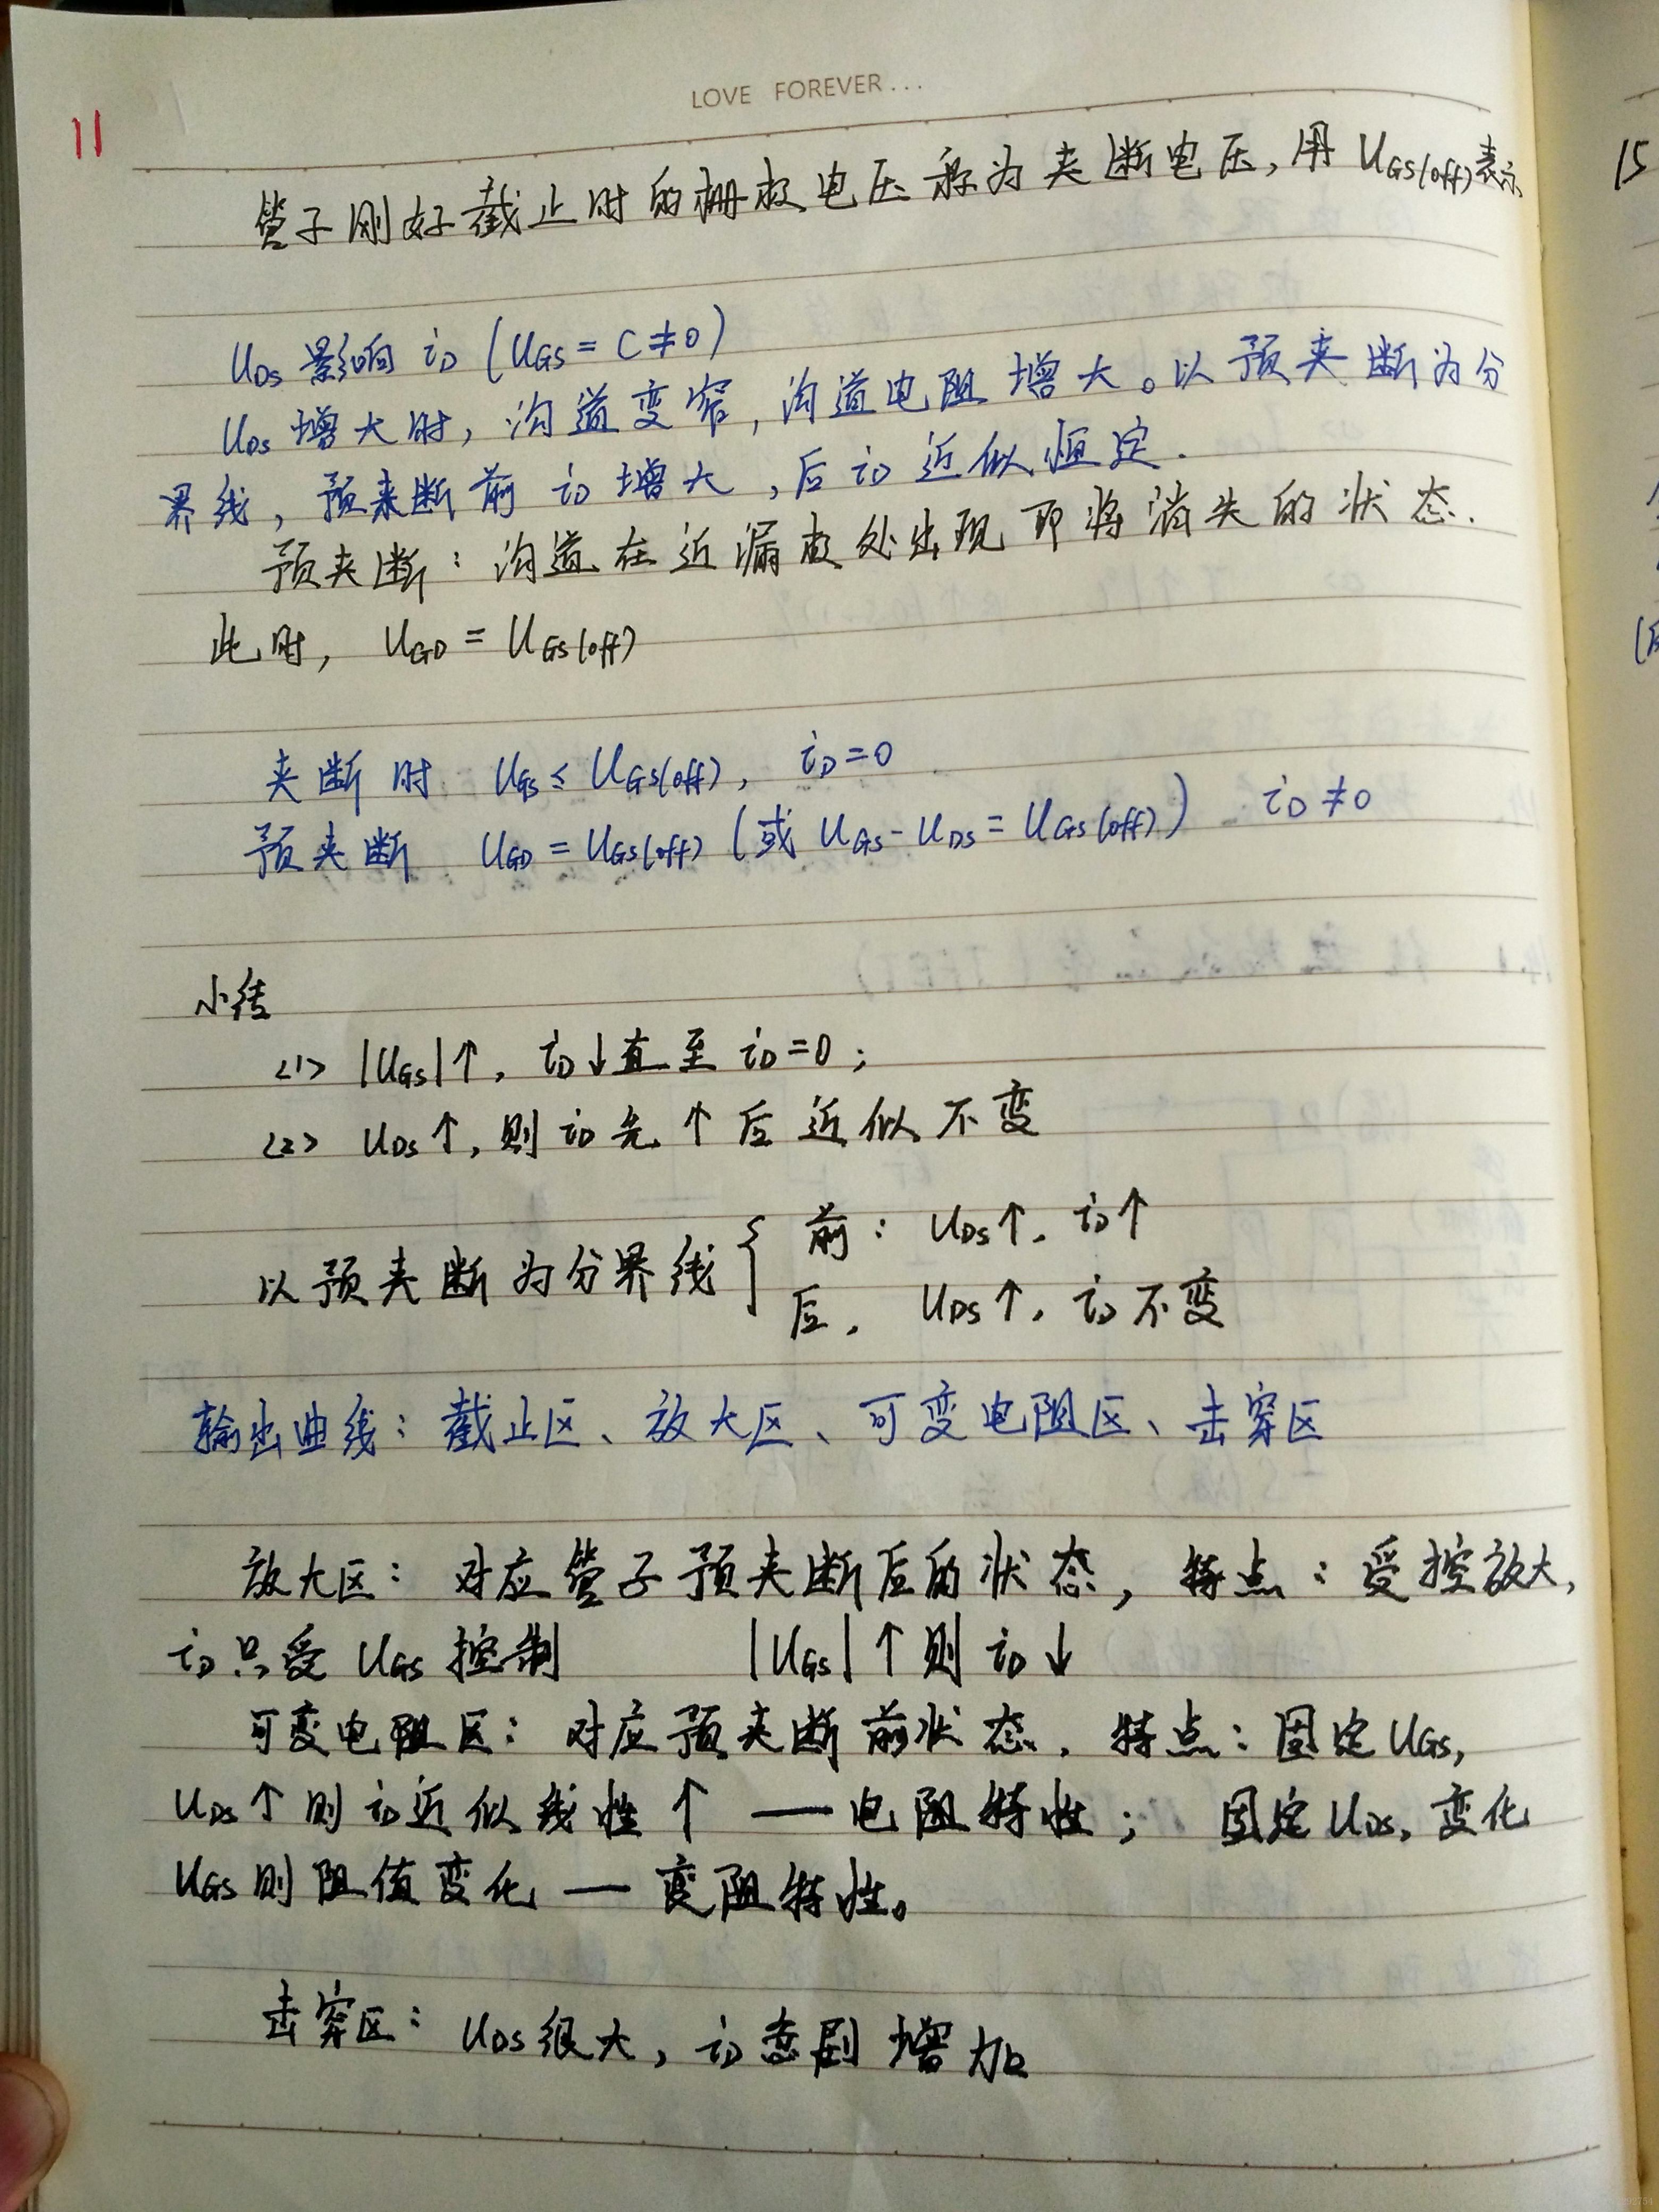 LOVE FOREVER...
11
管子刚好截止时的栅极电压称为夹断电压,用 UGS(off)表示
15
UDS 影响 iD (UGS = C ≠ 0)
UDS 增大时, 沟道变窄, 沟道电阻增大。以预夹断为分
界线, 预夹断前 iD 增大, 后 iD 近似恒定.
预夹断: 沟道在近漏极处出现即将消失的状态.
此时, UGD = UGS(off)
夹断时 UGS ≤ UGS(off), iD=0
预夹断 UGD = UGS(off) (或 UGS - UDS = UGS(off)) iD ≠ 0
小结
<1> |UGS|↑, iD↓直至 iD=0;
<2> UDS↑, 则 iD 先↑后近似不变
以预夹断为分界线 { 前: UDS↑, iD↑
后, UDS↑, iD 不变
输出曲线: 截止区、放大区、可变电阻区、击穿区
放大区: 对应管子预夹断后的状态, 特点: 受控放大,
iD 只受 UGS 控制 |UGS|↑则 iD↓
可变电阻区: 对应预夹断前状态. 特点: 固定 UGS,
UDS↑则 iD 近似线性↑ — 电阻特性; 固定 UDS, 变化
UGS 则阻值变化 — 变阻特性。
击穿区: UDS 很大, iD 急剧增加